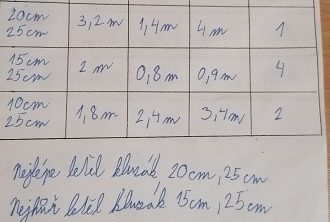 20cm 25cm 3,2m 1,4m 4m 1
15cm 25cm 2m 0,8m 0,9m 4
10cm 25cm 1,8m 2,4m 3,4m 2
Nejlépe letěl kluzák 20cm, 25cm
Nejhůř letěl kluzák 15cm, 25cm